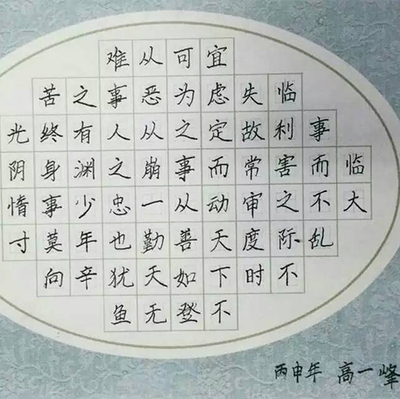 临大
事而不乱
临利害之际不
失故常审度时
宜虑定而动天下不
可为之事从善如登
从恶从崩一勤天无
难事人之忠也犹鱼
之有渊少年辛
苦终身事莫向
光阴惰寸
丙申年 高一峰